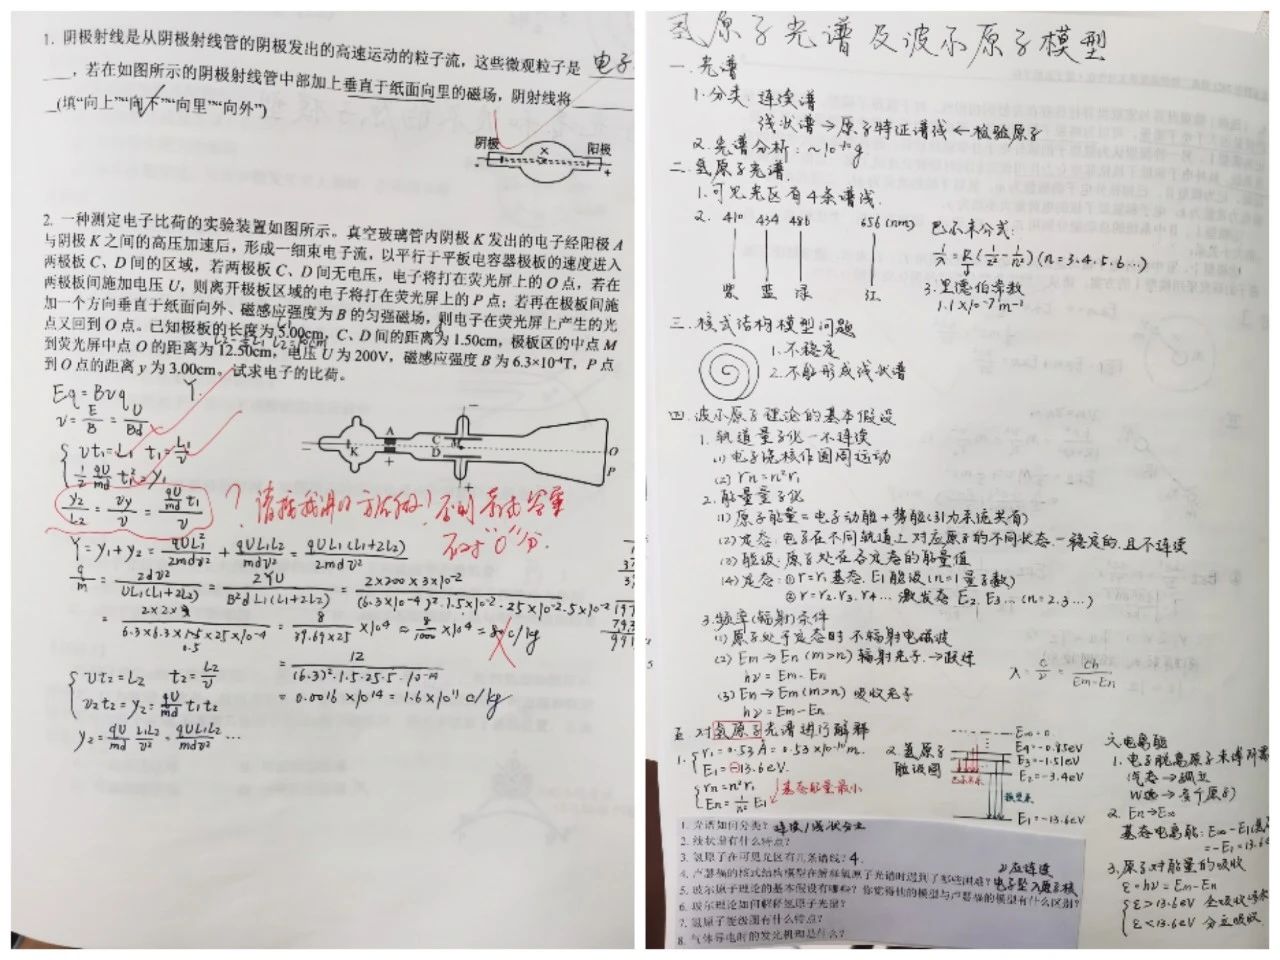 1. 阴极射线是从阴极射线管的阴极发出的高速运动的粒子流，这些微观粒子是 电子
____，若在如图所示的阴极射线管中部加上垂直于纸面向里的磁场，阴射线将____
_(填“向上”“向下”“向里”“向外”)
阴极 × 阳极
- +
2. 一种测定电子比荷的实验装置如图所示。真空玻璃管内阴极 K 发出的电子经阳极 A
与阴极 K 之间的高压加速后，形成一细束电子流，以平行于平板电容器极板的速度进入
两极板 C、D 间的区域，若两极板 C、D 间无电压，电子将打在荧光屏上的 O 点，若在
两极板间施加电压 U，则离开极板区域的电子将打在荧光屏上的 P 点；若再在极板间施
加一个方向垂直于纸面向外、磁感应强度为 B 的匀强磁场，则电子在荧光屏上产生的光
点又回到 O 点。已知极板的长度为 5.00cm，C、D 间的距离为 1.50cm，极板区的中点 M
到荧光屏中点 O 的距离为 12.50cm，电压 U 为 200V，磁感应强度 B 为 6.3×10⁻⁴T，P 点
到 O 点的距离 y 为 3.00cm。试求电子的比荷。
Eq = Bvq Y.
v = E/B = U/Bd
{ vt₁ = L₁ t₁ = L₁/v
½ qU/md t₁² = y₁
A C M O
K D P
y₂/L₂ = vy/v = (qU/md t₁)/v
? 请按我讲的方法做！否则 答案
不对“0”分.
Y = y₁ + y₂ = qUL₁²/2mdv² + qUL₁L₂/mdv² = qUL₁(L₁+2L₂)/2mdv²
q/m = 2dv²Y/UL₁(L₁+2L₂) = 2YU/B²dL₁(L₁+2L₂) = 2×200×3×10⁻²/(6.3×10⁻⁴)²·1.5×10⁻²·25×10⁻²·5×10⁻²
{ vt₂ = L₂ t₂ = L₂/v
v₂t₂ = y₂ = qU/md t₁t₂
= 12/(6.3)²·1.5·25·5·10⁻¹⁴
= 0.0016×10¹⁴ = 1.6×10¹¹ c/kg
y₂ = qU/md L₁L₂/v² = qUL₁L₂/mdv² …
氢原子光谱及波尔原子模型
一. 光谱
1. 分类. 连续谱
线状谱 → 原子特征谱线 ← 检验原子
2. 光谱分析: ~10⁻¹⁰g
二. 氢原子光谱.
1. 可见光区有4条谱线.
2. 410 434 486 656 (nm)
紫 蓝 绿 红
巴尔末公式:
(n = 3.4.5.6…)
3. 里德伯常数
1.1×10⁻⁷m⁻¹
三. 核式结构模型问题
1. 不稳定
2. 不能形成线状谱
四. 波尔原子理论的基本假设
1. 轨道量子化—不连续
(1) 电子绕核作圆周运动
(2) rn = n²r₁
2. 能量量子化
(1) 原子能量 = 电子动能 + 势能 (引力系统共有)
(2) 定态: 电子在不同轨道上对应原子的不同状态. 一稳定的. 且不连续
(3) 能级: 原子处在各定态的能量值
(4) 定态: ① r = r₁ 基态. E₁ 能级 (n = 1 量子数)
② r = r₂. r₃. r₄… 激发态 E₂. E₃… (n = 2.3…)
3. 频率(辐射)条件
(1) 原子处于定态时 不辐射电磁波
(2) Em → En (m>n) 辐射光子. → 跃迁
hν = Em - En
λ = c/ν = ch/(Em-En)
(3) En → Em (m>n) 吸收光子
hν = Em - En
五 对氢原子光谱进行解释
1. { r₁ = 0.53 Å = 0.53×10⁻¹⁰m.
E₁ = -13.6eV.
{ rn = n²r₁
En = 1/n² E₁
基态能量最小
2. 氢原子
能级图
E∞ = 0
E₄ = -0.85eV
E₃ = -1.51eV
E₂ = -3.4eV
E₁ = -13.6eV
六 电离能
1. 电子脱离原子束缚所需
2. En → E∞
基态电离能: E∞ - E₁
= -E₁ = 13.6
3. 原子对能量的吸收
ε = hν = Em - En
{ ε > 13.6eV 全吸收
ε < 13.6eV 分立吸收
1. 光谱如何分类? 连续/线状
2. 线状谱有什么特点?
3. 氢原子在可见光区有几条谱线? 4.
4. 卢瑟福的核式结构模型在解释氢原子光谱时遇到了那些困难? 电子坠入原子核
应连续
5. 玻尔原子理论的基本假设有哪些? 你觉得他的模型与卢瑟福的模型有什么区别?
6. 玻尔理论如何解释氢原子光谱?
7. 氢原子能级图有什么特点?
8. 气体导电时的发光机理是什么?